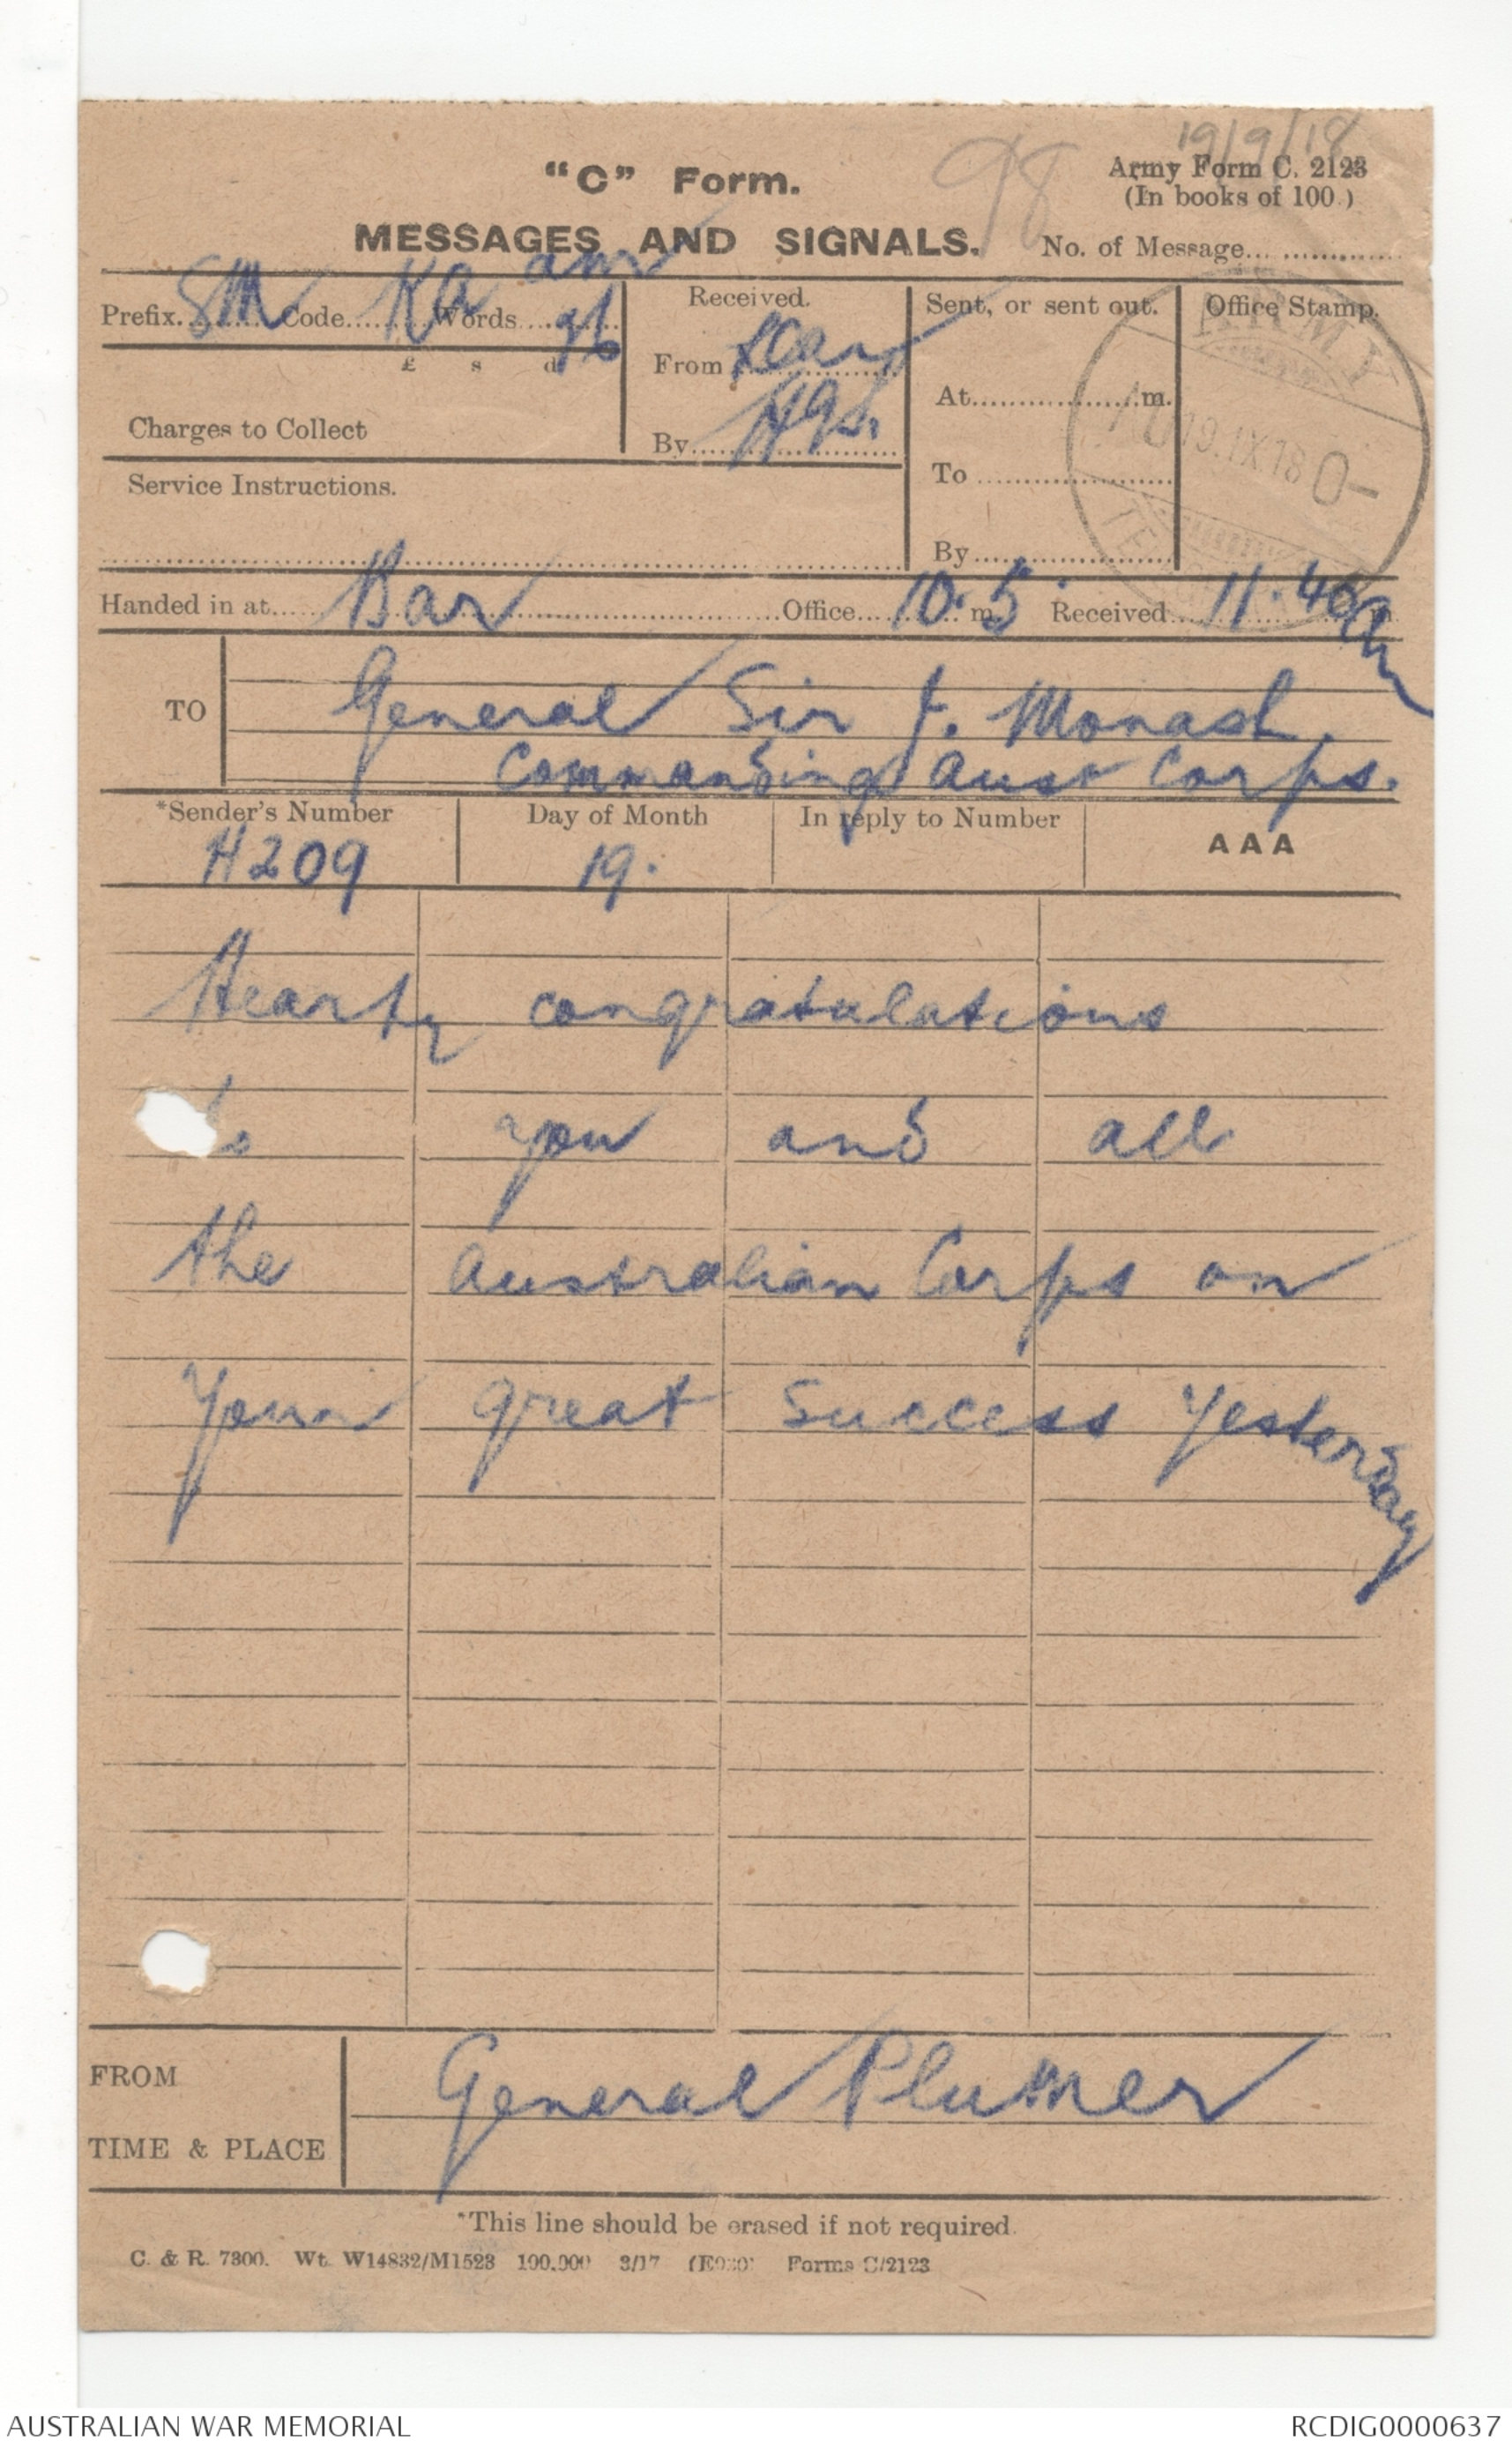 19/9/18
98
"C" Form.
Army Form C. 2123
(In books of 100.)
MESSAGES AND SIGNALS.
No. of Message
Prefix SM Code KA Words
£ s d
Charges to Collect
Received.
From
By
Sent, or sent out.
At m.
To
By
Office Stamp.
ARMY
19.IX.18
Service Instructions.
Handed in at Bar Office 10.5 m. Received 11.40am
TO General Sir J. Monash.
Commanding Aust Corps.
*Sender's Number Day of Month In reply to Number AAA
H209 19.
Hearty congratulations
to you and all
the Australian Corps on
Your great success yesterday
FROM General Plumer
TIME & PLACE
*This line should be erased if not required.
C. & R. 7300. Wt. W14832/M1523 100,000 3/17 Forms C/2123
AUSTRALIAN WAR MEMORIAL
RCDIG0000637